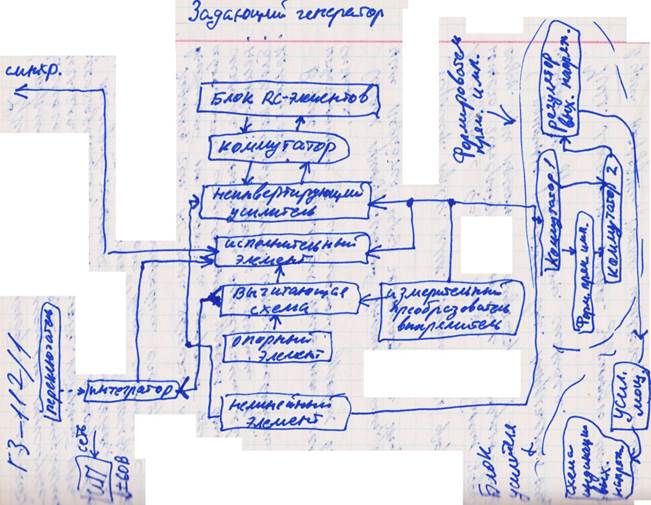 Задающий генератор
синхр.
Блок RC-элементов
коммутатор
неинвертирующий
усилитель
исполнительный
элемент
Вычитающая
схема
опорный
элемент
нелинейный
элемент
измерительный
преобразователь
выпрямитель
интегратор
переключатель
Г3-112/1
сеть
ИП
±60В
Формирователь
прям. имп.
регулятор
вых. напряж.
Коммутатор 1
Форм. прям. имп.
Коммутатор 2
Блок
усилителя
Усил.
мощ.
схема
индикации
вых.
напряж.